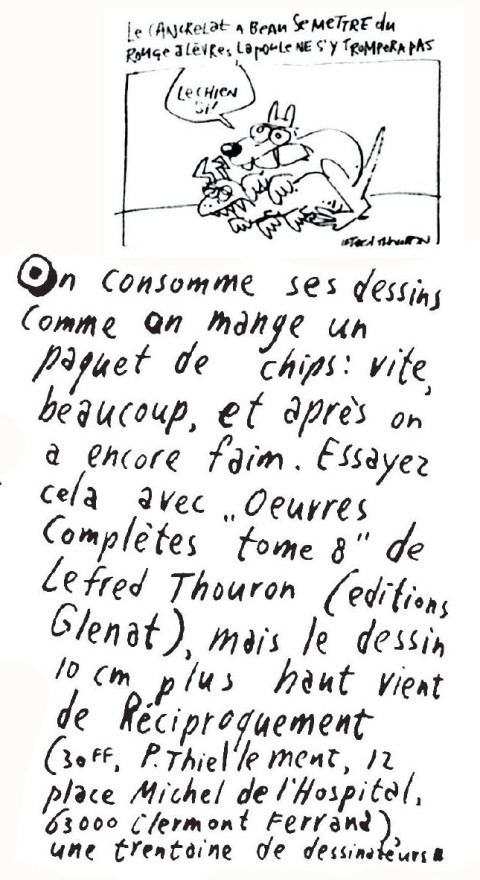 Le CANCRELAT A BEAU Se METTRE du
Rouge à Lèvres, La pouLe NE S'Y TROMPERA PAS
Le CHIEN
Si!
LeFRed THOURON
On consomme ses dessins
comme on mange un
paquet de chips: vite,
beaucoup, et après on
a encore faim. Essayez
cela avec „Oeuvres
Complètes tome 8" de
Lefred Thouron (editions
Glenat), mais le dessin
10 cm plus haut vient
de Réciproquement
(30FF, P.Thiellement, 12
place Michel de l'Hospital,
63000 Clermont Ferrand),
une trentaine de dessinateurs